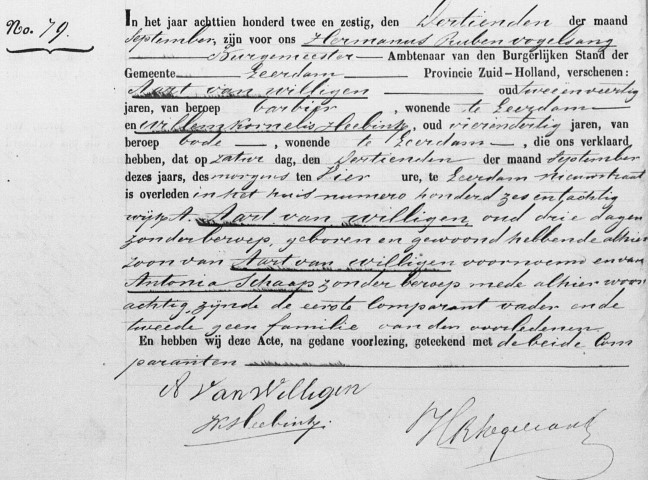 No. 79.
In het jaar achttien honderd twee en zestig, den Dertienden der maand
September, zijn voor ons Hermanus Ruben Vogelsang
Burgemeester Ambtenaar van den Burgerlijken Stand der
Gemeente Leerdam Provincie Zuid-Holland, verschenen:
Aart van Willigen oud tweeënveertig
jaren, van beroep barbier, wonende te Leerdam
en Willem Kornelis Heebink, oud vierindertig jaren, van
beroep bode, wonende te Leerdam, die ons verklaard
hebben, dat op Zatur dag, den Dertienden der maand September
dezes jaars, des morgens ten Vier ure, te Leerdam Nieuwstraat
is overleden in het huis numero honderd zes en tachtig
wijk A. Aart van Willigen, oud drie dagen
zonder beroep, geboren en gewoond hebbende alhier
zoon van Aart van Willigen voornoemd en van
Antonia Schaap zonder beroep mede alhier woon
achtig, zijnde de eerste Comparant vader en de
tweede geen familie van den overledenen.
En hebben wij deze Acte, na gedane voorlezing, geteekend met de beide Com
paranten
A Van Willigen
W. Heebink.
HRVogelsang